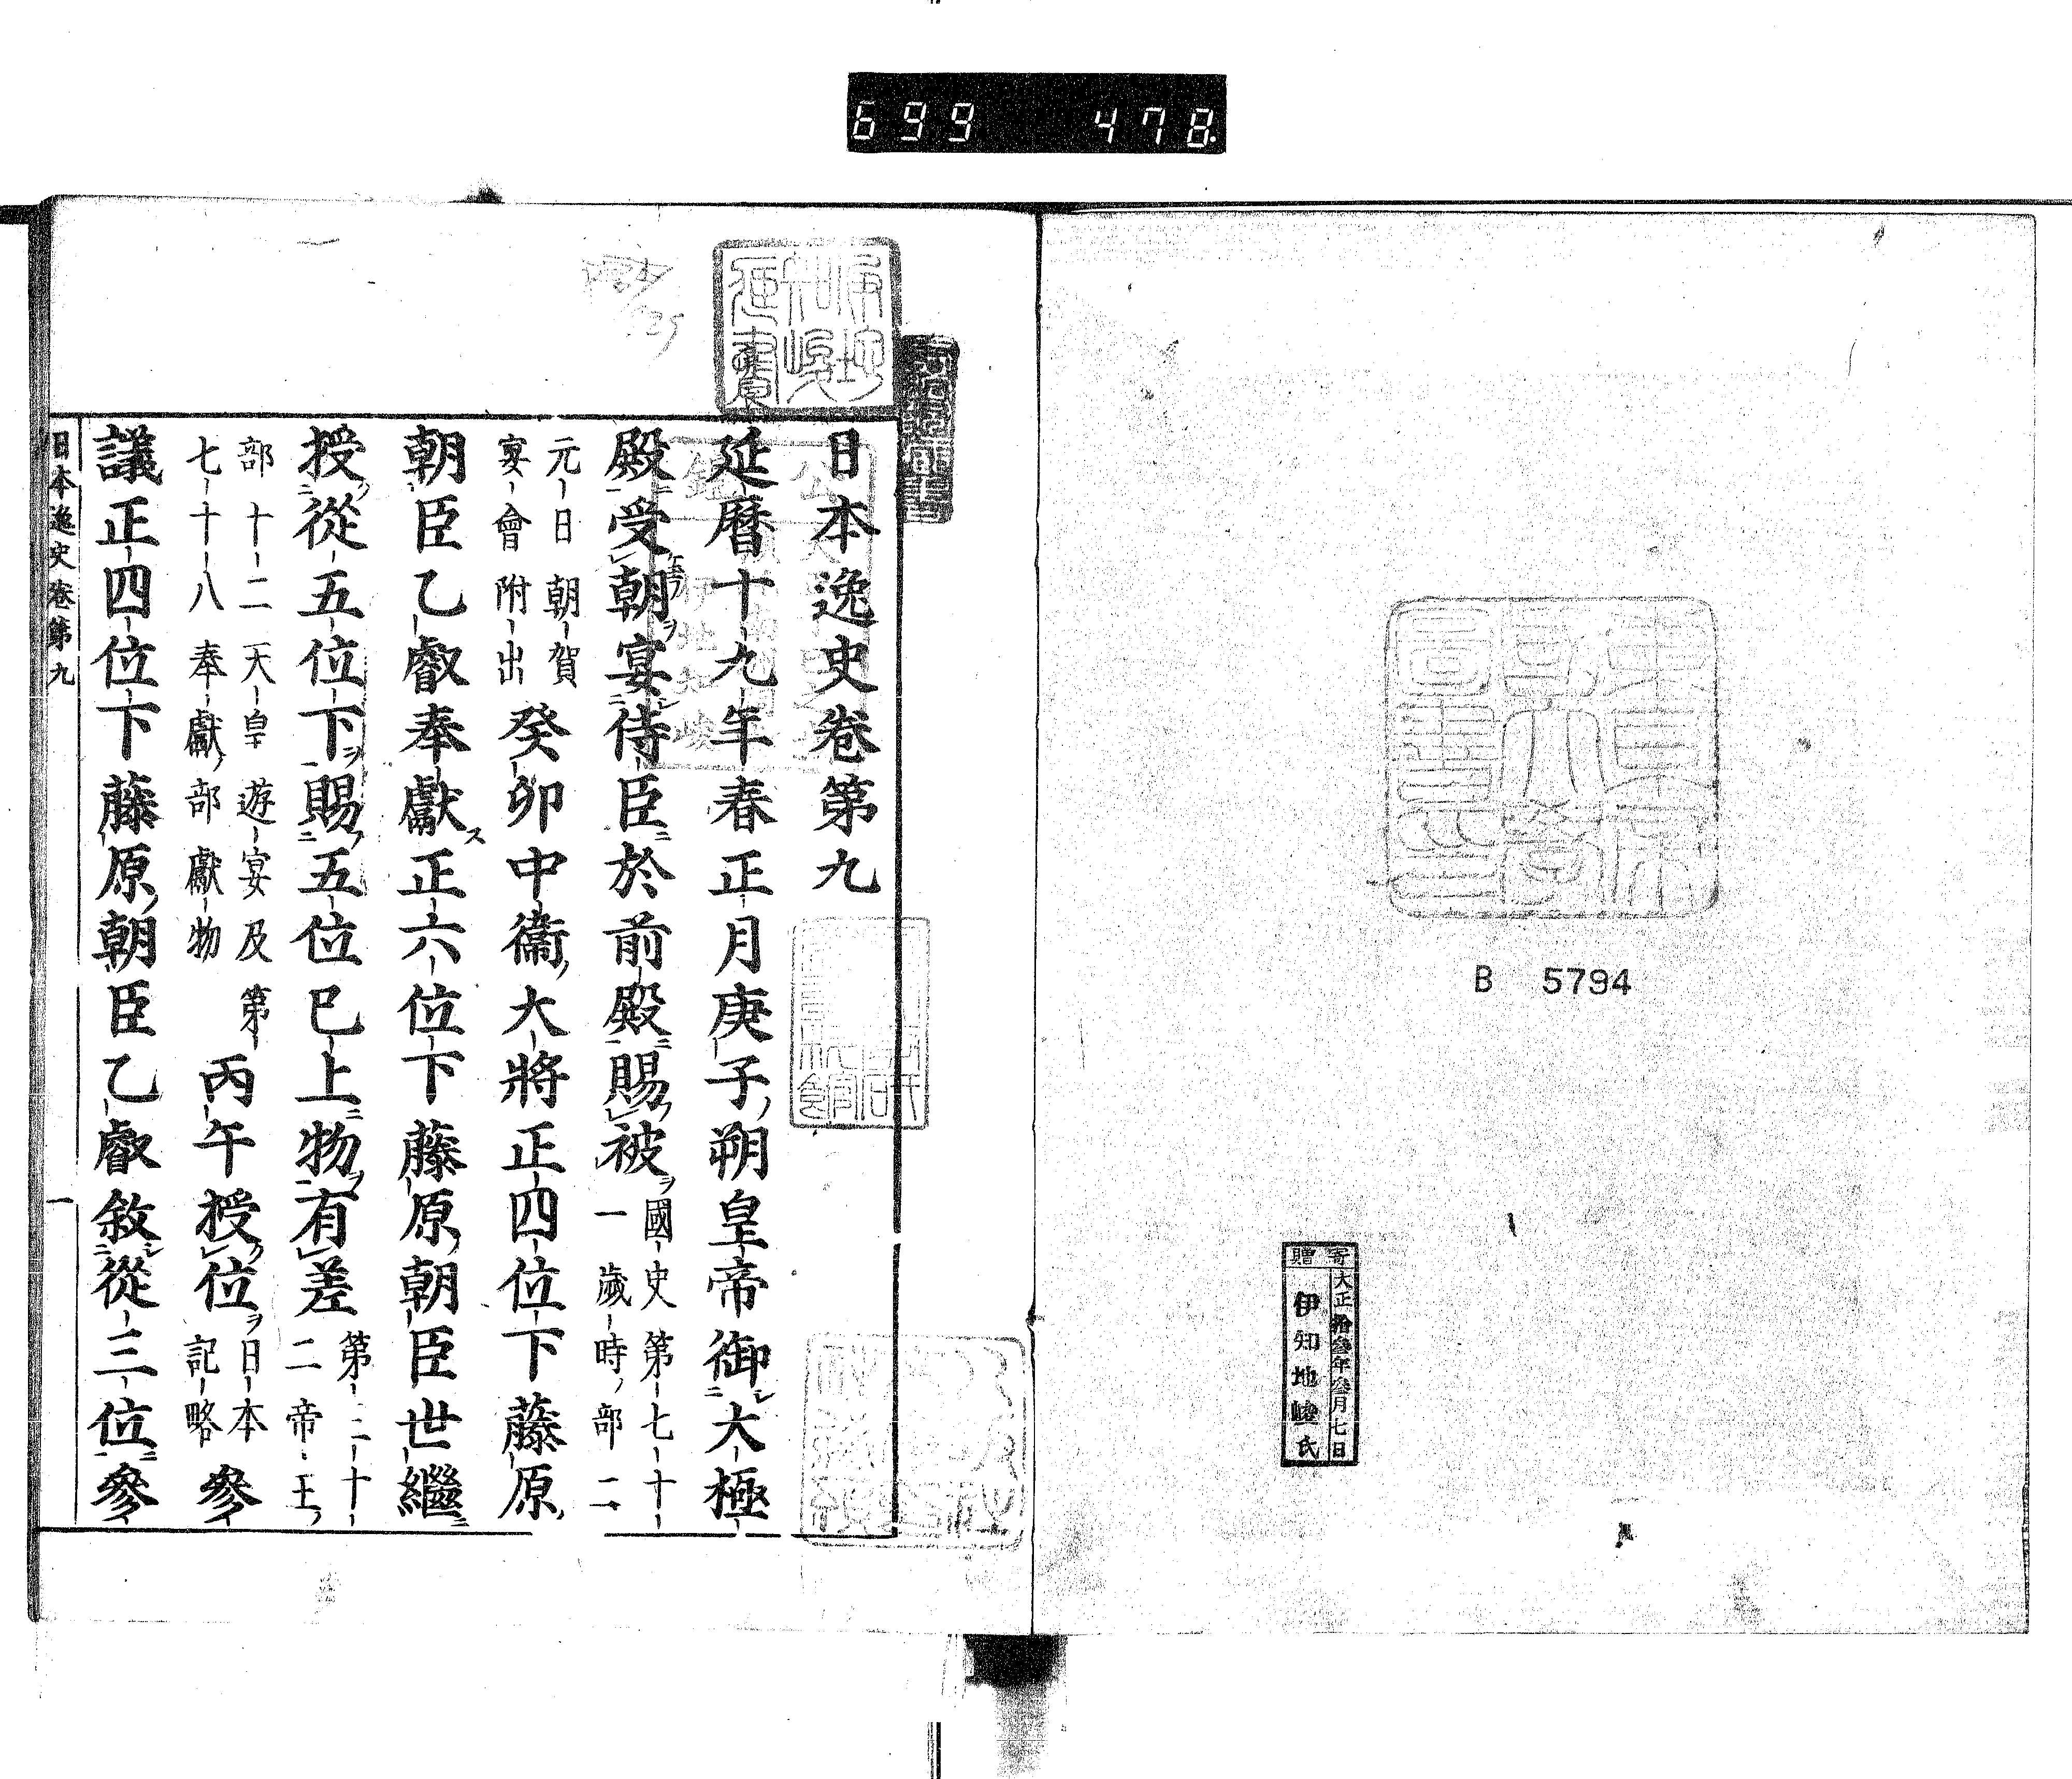 699 478
東京大學圖書印
B 5794
寄贈
大正拾參年參月七日
伊知地峻氏
日本逸史卷第九
延暦十九年春正月庚子朔皇帝御大極
殿受朝宴侍臣於前殿賜被 國史第七十一歲時部二
元日朝賀宴會附出 癸卯中衞大將正四位下藤原
朝臣乙叡奉獻正六位下藤原朝臣世繼
授從五位下賜五位已上物有差 第三十二帝王
部十二天皇遊宴及第七十八奉獻部獻物 丙午授位 日本記略 參
議正四位下藤原朝臣乙叡敘從三位參
日本逸史卷第九 一